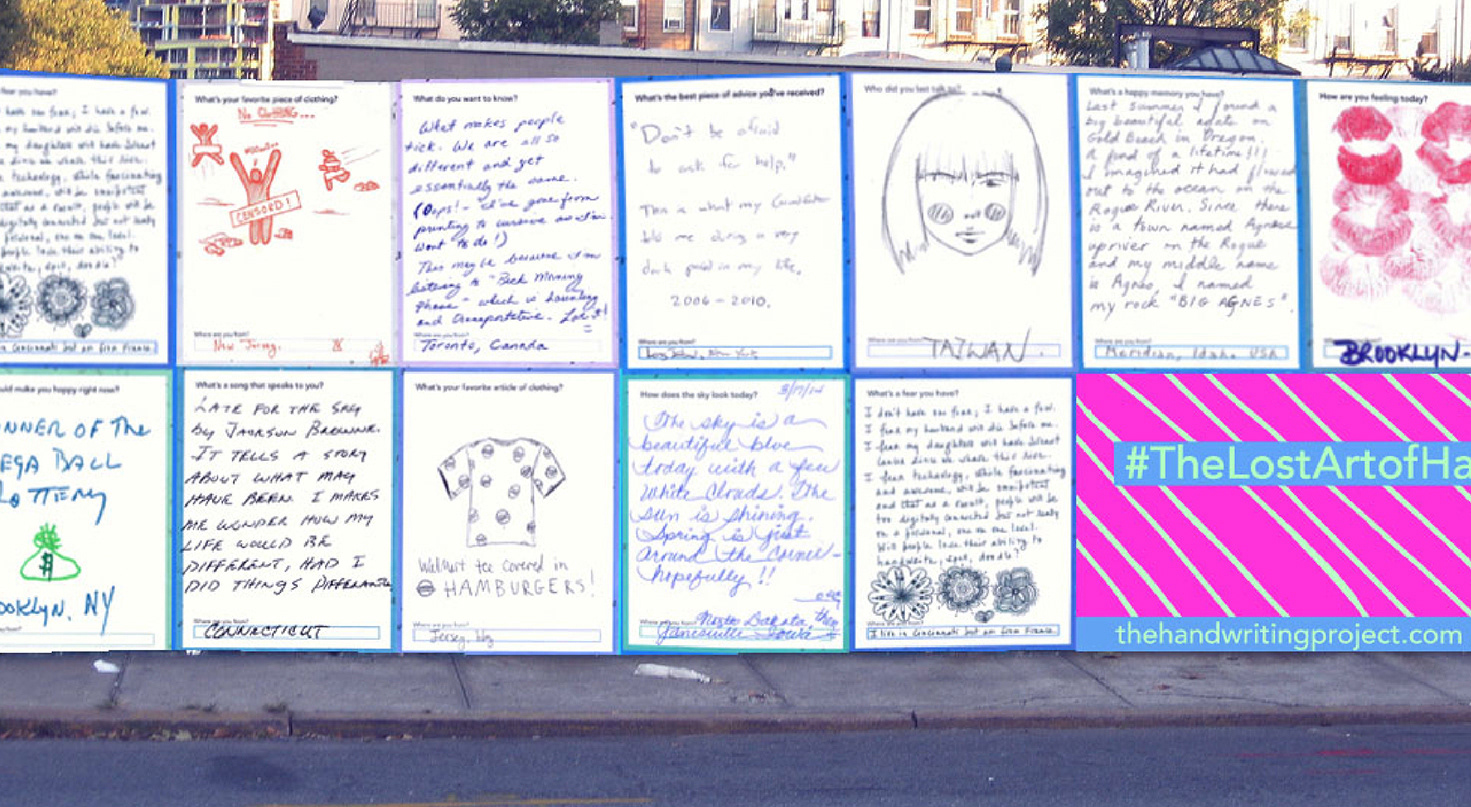 fear you have?
What's your favorite piece of clothing?
No CLOTHING...
CENSORD!
Where are you from?
New Jersey.
What do you want to know?
What makes people
tick. We are all so
different and yet
essentially the same.
(Oops! - I've gone from
printing to cursive
want to do!)
This may be because I'm
listening to "Beck Morning
Phase" - which is haunting
and transportative. Love it!
Where are you from?
Toronto, Canada
What's the best piece of advice you've received?
"Don't be afraid
to ask for help."
This is what my
told me during a very
dark period in my life,
2006 - 2010.
Where are you from?
Long Island, New York
Who did you last talk to?
Where are you from?
TAIWAN.
What's a happy memory you have?
Last summer I found a
big beautiful agate on
Gold Beach in Oregon.
A find of a lifetime!!!
I imagined it had flowed
out to the ocean in the
Rogue River. Since there
is a town named Agness
upriver on the Rogue
and my middle name
is Agnes, I named
my rock "BIG AGNES".
Where are you from?
Meridian, Idaho USA
How are you feeling today?
BROOKLYN-
uld make you happy right now?
NNER OF THE
EGA BALL
LOTTERY
$
ooklyn, NY
What's a song that speaks to you?
LATE FOR THE SKY
BY JACKSON BROWNE.
IT TELLS A STORY
ABOUT WHAT MAY
HAVE BEEN & MAKES
ME WONDER HOW MY
LIFE WOULD BE
DIFFERENT, HAD I
DID THINGS DIFFERENTLY
Where are you from?
CONNECTICUT
What's your favorite article of clothing?
Walmart tee covered in
HAMBURGERS!
Where are you from?
Jersey,
How does the sky look today?
3/17/14
The sky is a
beautiful blue
today with a few
white clouds. The
sun is shining.
Spring is just
around the corner -
hopefully!!
North Dakota, then
Janesville Iowa
What's a fear you have?
I don't have one fear; I have a few.
I fear my husband will die before me.
I fear my daughters will have breast
cancer since we share this gene.
I fear technology, while fascinating
and awesome, will be omnipotent
and that as a result, people will be
too digitally connected but not really
on a personal, one on one level.
Will people lose their ability to
handwrite, spell, doodle?
Where are you from?
I live in Cincinnati but am from France.
#TheLostArtofHa
thehandwritingproject.com